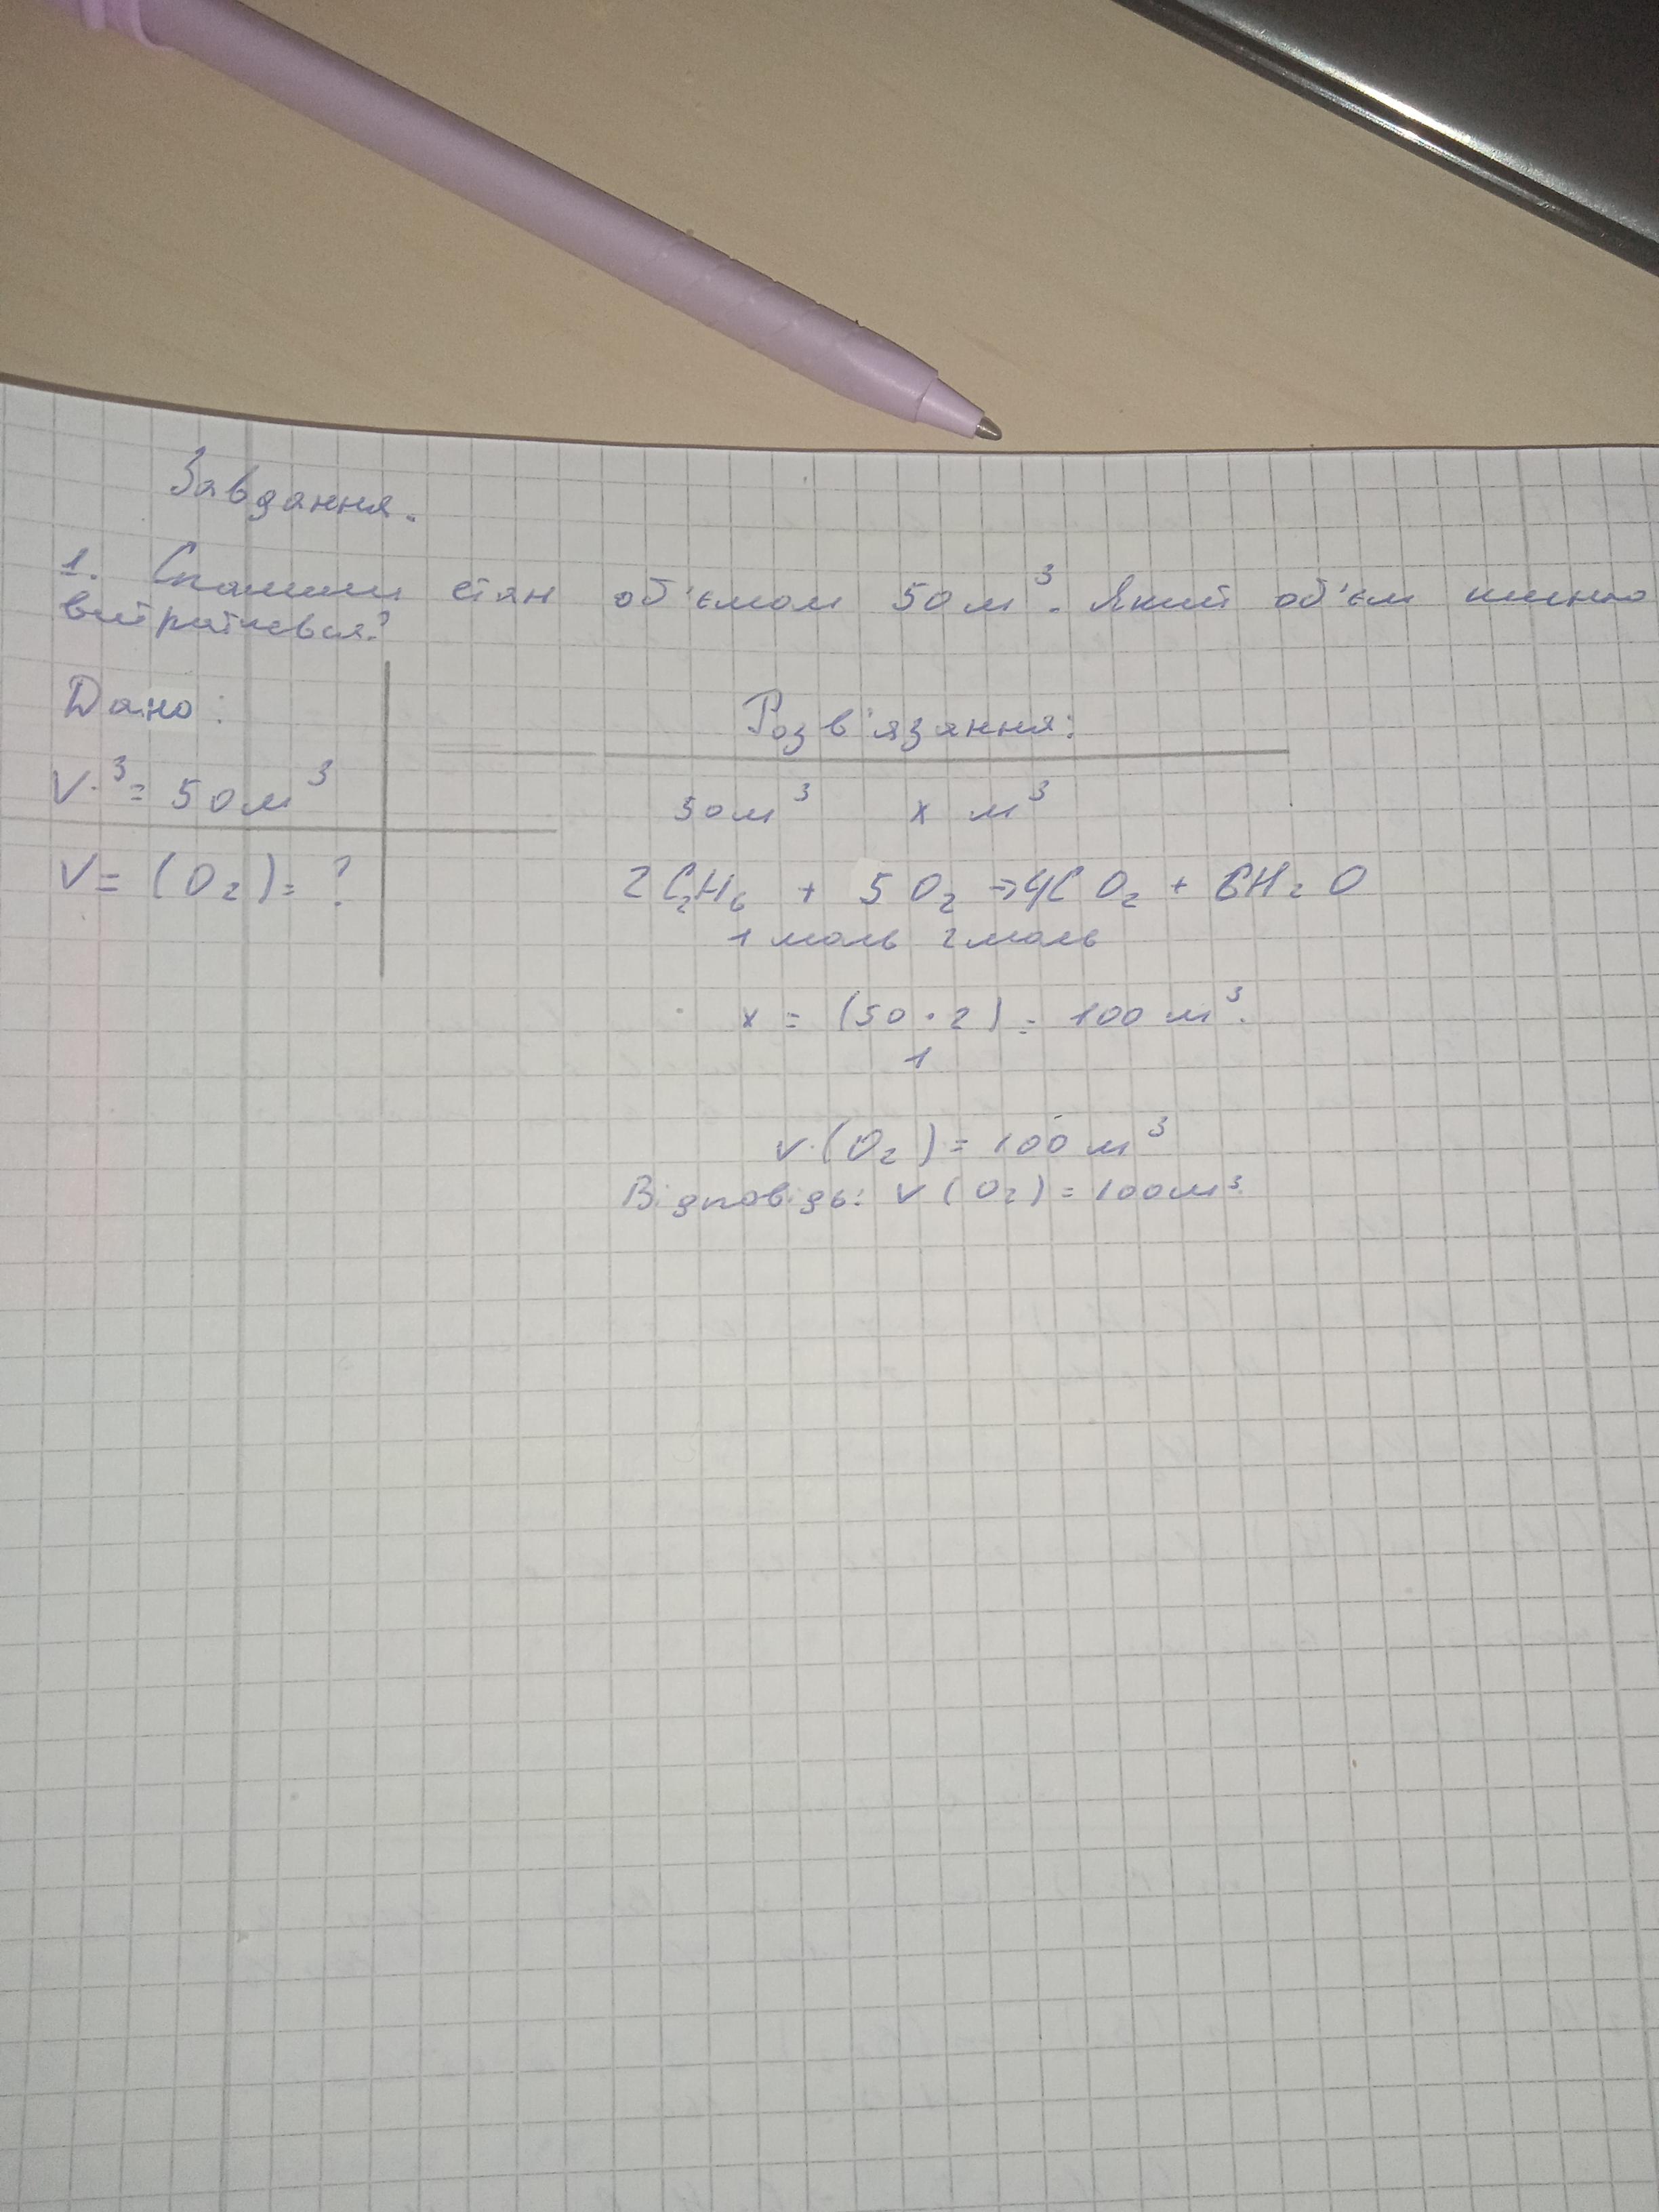 Завдання.
1. Спалили етан об'ємом 50 м³. Який об'єм кисню
витратився?
Дано:
Розв'язання:
V³ = 50м³
50м³ x м³
V = (O₂) = ?
2C₂H₆ + 5O₂ → 4CO₂ + 6H₂O
1 моль 2 моль
x = (50 · 2) = 100 м³.
1
V (O₂) = 100 м³
Відповідь: V (O₂) = 100м³